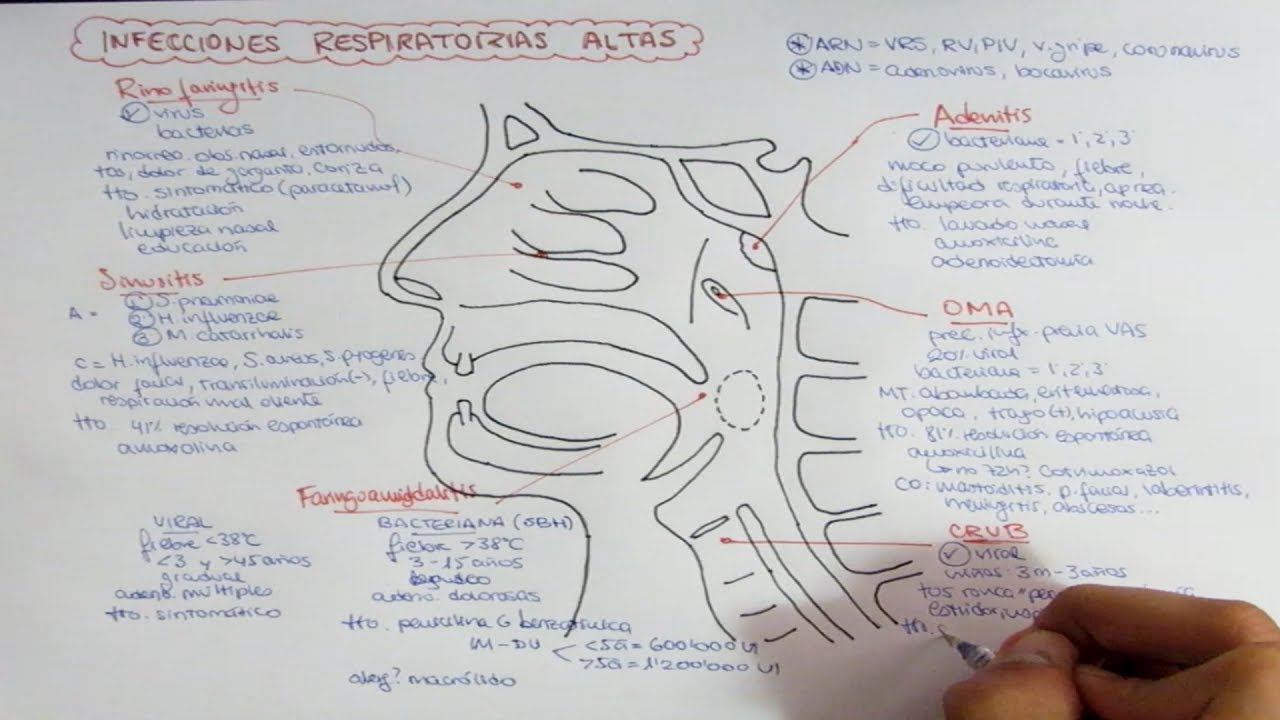 INFECCIONES RESPIRATORIAS ALTAS
* ARN = VRS, RV, PIV, v.gripe, coronavirus
* ADN = adenovirus, bocavirus
Rinofaringitis
✓ virus
bacterias
rinorrea, obs.nasal, estornudos,
tos, dolor de garganta, coriza
tto. sintomático (paracetamol)
hidratación
limpieza nasal
educación
Sinusitis
A = ① S. pneumoniae
② H. influenzae
③ M. catarrhalis
C = H. influenzae, S. aureus, S. pyogenes
dolor facial, transiluminación(-), fiebre,
respiración mal oliente
tto. 41% resolución espontánea
amoxicilina
Faringoamigdalitis
VIRAL
fiebre <38°C
<3 y >45 años
gradual
adeno. múltiples
tto. sintomático
BACTERIANA (SBH)
fiebre >38°C
3-15 años
adeno. dolorosas
tto. penicilina G benzatínica
IM-DU < <5a = 600'000 UI
>5a = 1'200'000 UI
alerg? macrólido
Adenitis
✓ bacteriana = 1°, 2°, 3°
moco purulento, fiebre,
dificultad respiratoria, apnea.
empeora durante noche.
tto. lavado nasal
amoxicilina
adenoidectomía
OMA
prec. infx. previa VAS
20% viral
bacteriana = 1°, 2°, 3°
MT. abombada, eritematosa,
opaca, trago (+), hipoacusia
tto. 81% resolución espontánea
amoxicilina
↳ no 72h? Cotrimoxazol
CO: mastoiditis, p. facial, laberintitis,
meningitis, abscesos...
CRUB
✓ viral
niños: 3m-3años
tos ronca
estridor,
tto.